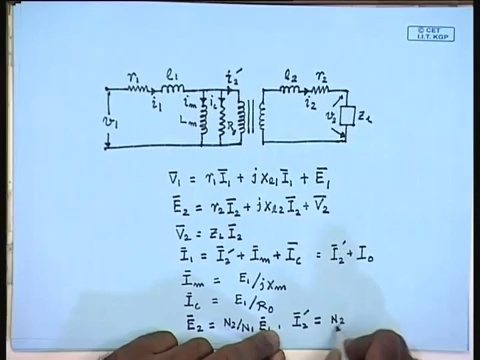 © CET
I.I.T. KGP
r₁ l₁ i₂′ l₂ r₂
i₁ iₘ i_c i₂
v₁ Lₘ R₀ v₂ Z_L
V̄₁ = r₁Ī₁ + jx_l1 Ī₁ + Ē₁
Ē₂ = r₂Ī₂ + jx_l2 Ī₂ + V̄₂
V̄₂ = Z_L Ī₂
Ī₁ = Ī₂′ + Īₘ + Ī_c = Ī₂′ + Ī₀
Īₘ = E₁/jxₘ
Ī_c = E₁/R₀
Ē₂ = N₂/N₁ Ē₁, Ī₂′ = N₂